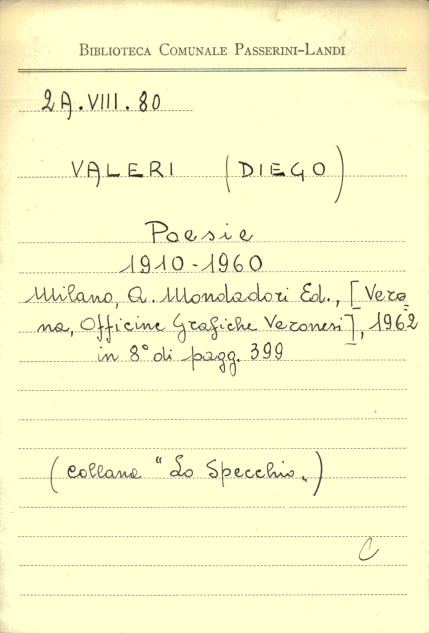 BIBLIOTECA COMUNALE PASSERINI-LANDI
2A.VIII.80
VALERI (DIEGO)
Poesie
1910-1960
Milano, A. Mondadori Ed., [Vero-
na, Officine Grafiche Veronesi], 1962
in 8° di pagg. 399
(collana "Lo Specchio„)
C